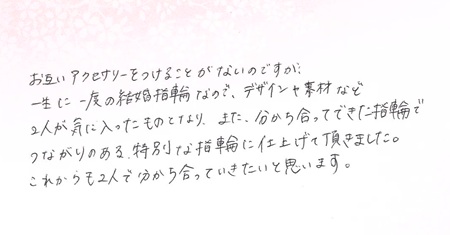 お互いアクセサリーをつけることがないのですが、
一生に一度の結婚指輪なので、デザインや素材など
2人が気に入ったものとなり、また、分から合ってできた指輪で
つながりのある、特別な指輪に仕上げて頂きました。
これからも2人で分から合っていきたいと思います。